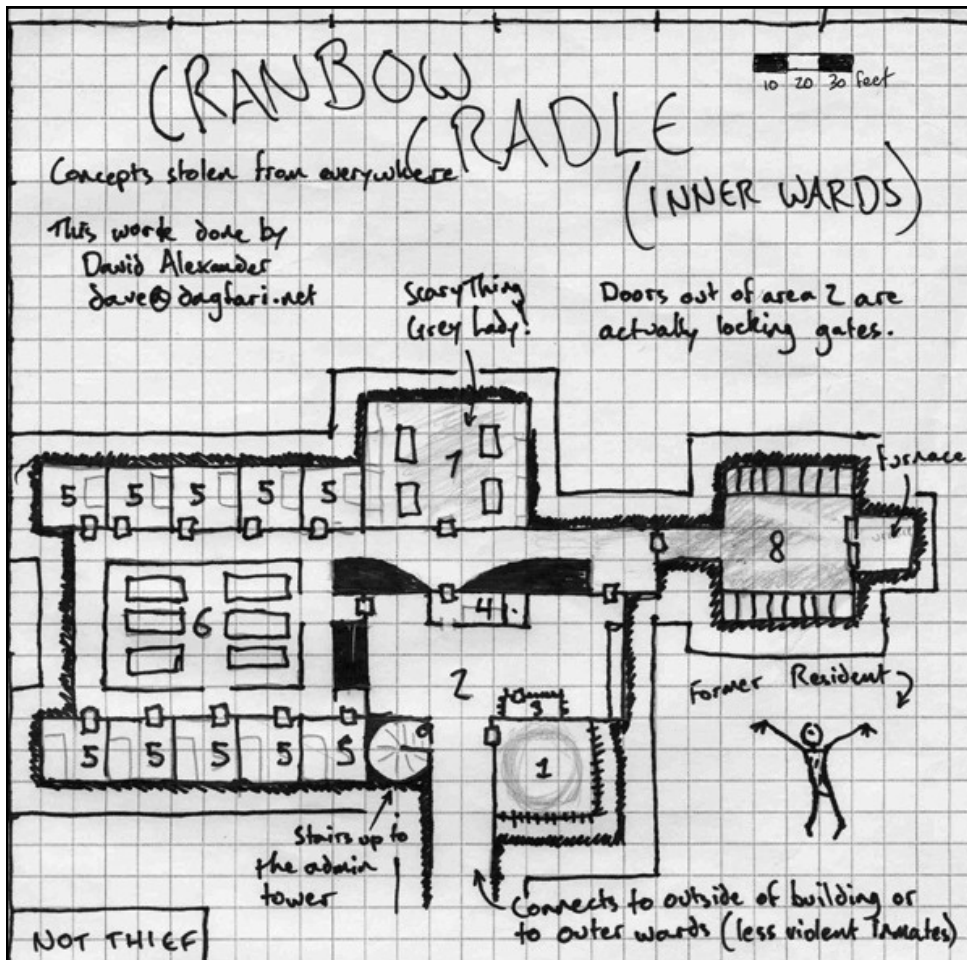 CRANBOW
CRADLE
(INNER WARDS)
10 20 30 feet
Concepts stolen from everywhere
This work done by
David Alexander
dave@dagfari.net
Scary Thing
Grey Lady!
Doors out of area 2 are
actually locking gates.
Furnace
5 5 5 5 5
7
8
6
4
2
3
Former Resident
5 5 5 5 5
9
1
Stairs up to
the admin
tower
Connects to outside of building or
to outer wards (less violent inmates)
NOT THIEF